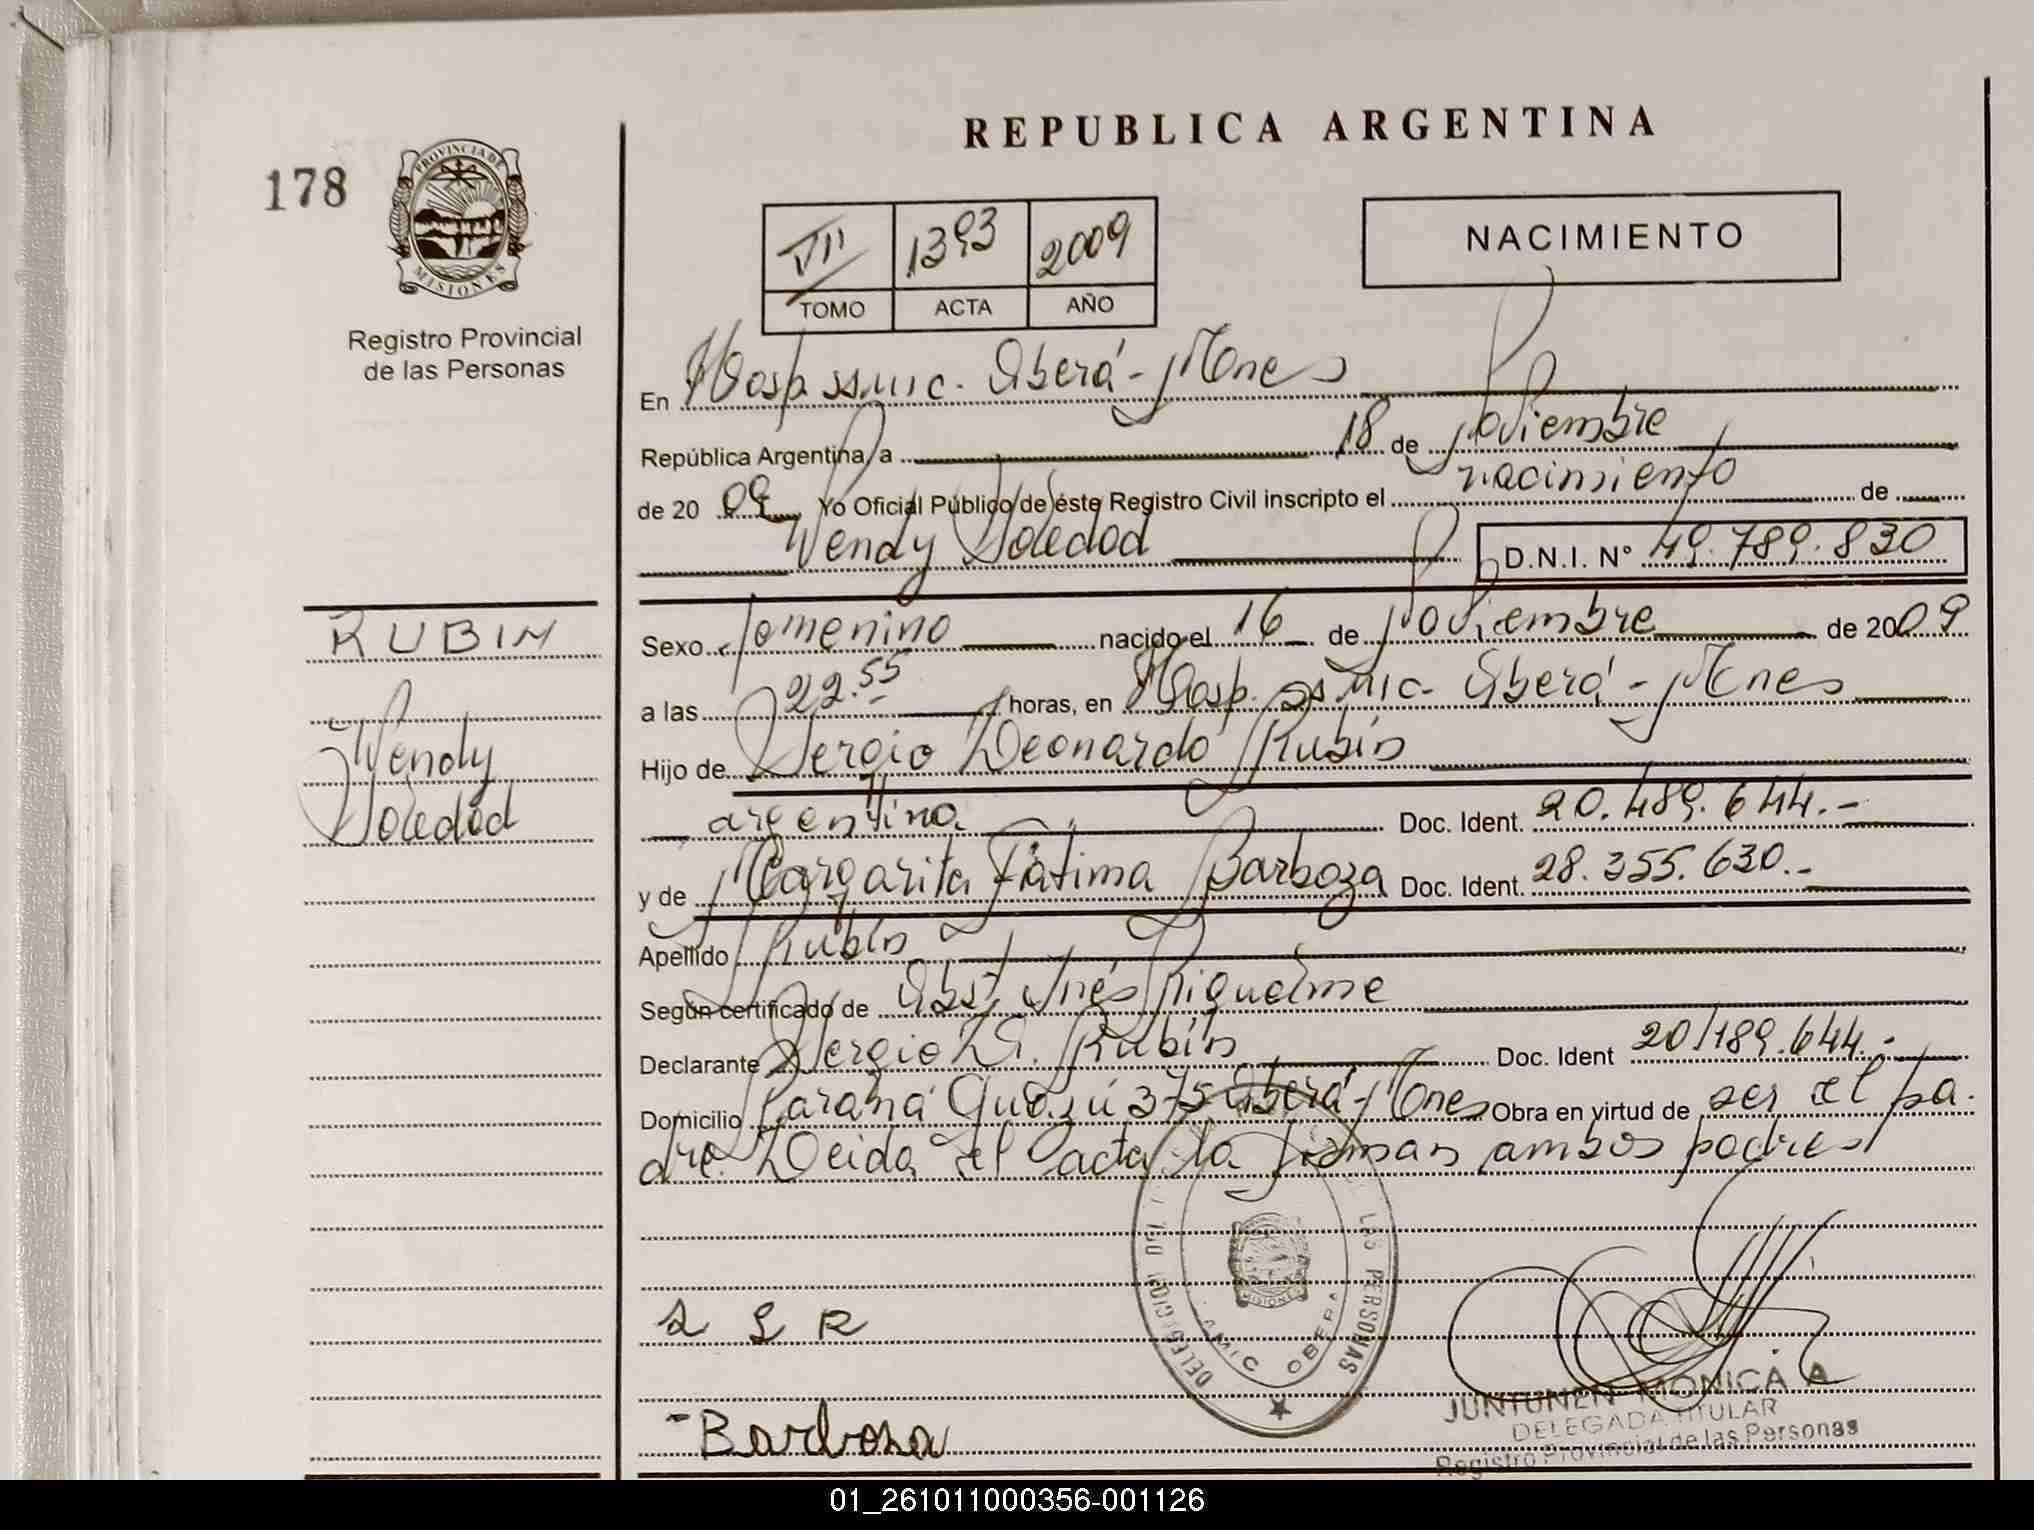 REPUBLICA ARGENTINA
178
PROVINCIA DE
MISIONES
Registro Provincial
de las Personas
VIII 1393 2009
TOMO ACTA AÑO
NACIMIENTO
En Hosp. SS.MIC. Oberá - Mnes
República Argentina, a 18 de Noviembre
de 2009 Yo Oficial Público de éste Registro Civil inscripto el nacimiento de
Wendy Soledad D.N.I. Nº 49.789.830
RUBIN
Wendy
Soledad
Sexo femenino nacido el 16 de Noviembre de 2009
a las 22.55 horas, en Hosp. SS MIC. Oberá - Mnes
Hijo de Sergio Leonardo Rubin
argentina Doc. Ident. 20.489.644.-
y de Margarita Fátima Barboza Doc. Ident. 28.355.630.-
Apellido Rubin
Según certificado de Obst. Inés Riquelme
Declarante Sergio L. Rubin Doc. Ident 20.489.644.-
Domicilio Paraná Guazú 375 Oberá - Mnes Obra en virtud de ser el pa
dre. Leida el acta la firman ambos padres
S L R
Barboza
LAS PERSONAS
DELEGACION
SAMIC OBERA
MISIONES
JUNTUNEN MONICA A
DELEGADA TITULAR
Registro Provincial de las Personas
01_261011000356-001126